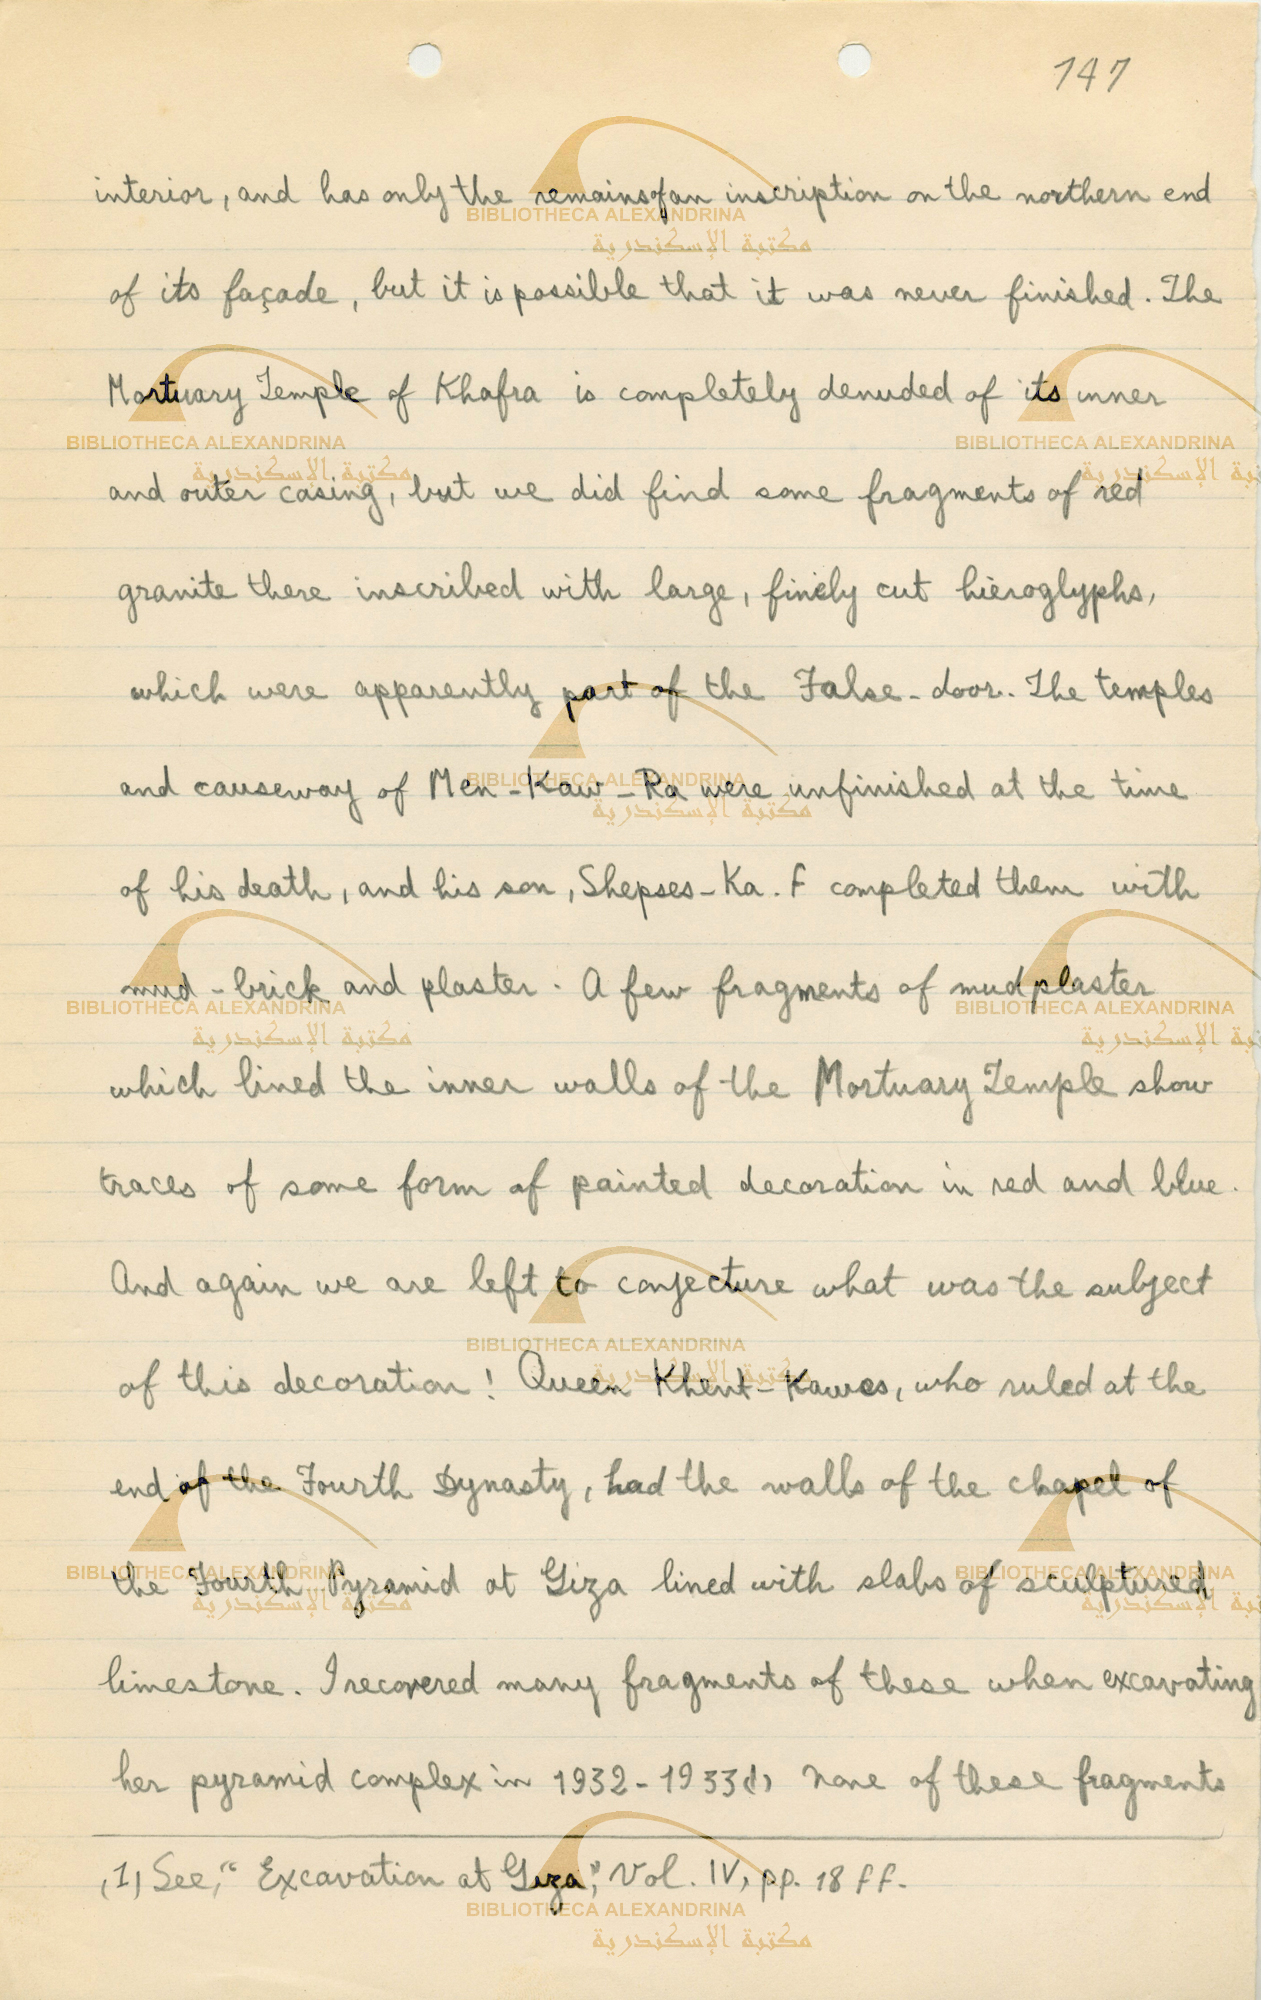 147
interior, and has only the remains of an inscription on the northern end
of its façade, but it is possible that it was never finished. The
Mortuary Temple of Khafra is completely denuded of its inner
and outer casing, but we did find some fragments of red
granite there inscribed with large, finely cut hieroglyphs,
which were apparently part of the False-door. The temples
and causeway of Men-Kaw-Ra were unfinished at the time
of his death, and his son, Shepses-Ka.f completed them with
mud-brick and plaster. A few fragments of mud plaster
which lined the inner walls of the Mortuary Temple show
traces of some form of painted decoration in red and blue.
And again we are left to conjecture what was the subject
of this decoration! Queen Khent-Kawes, who ruled at the
end of the Fourth Dynasty, had the walls of the chapel of
the Fourth Pyramid at Giza lined with slabs of sculptured
limestone. I recovered many fragments of these when excavating
her pyramid complex in 1932-1933(1) None of these fragments
(1) See, "Excavation at Giza", Vol. IV, pp. 18 ff.
BIBLIOTHECA ALEXANDRINA
مكتبة الإسكندرية